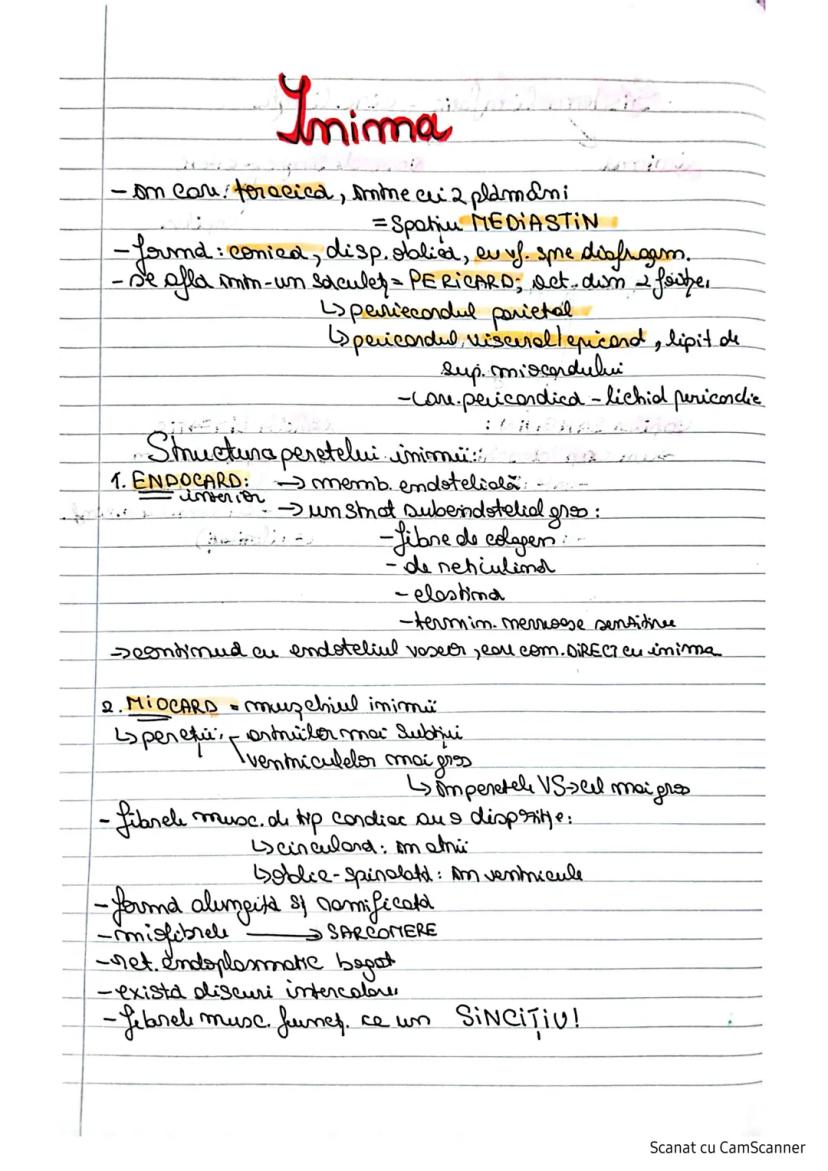 Inima
- în cav. toracică, între cei 2 plămâni
= Spațiu MEDIASTIN
- formă: conică, disp. oblică, cu vf. spre diafragm.
- se află într-un săculeț = PERICARD; alct. din 2 foițe:
↳ pericardul parietal
↳ pericardul visceral/epicard, lipit de
sup. miocardului
- cav. pericardică - lichid pericardic
Structura peretelui inimii:
1. ENDOCARD: → memb. endotelială
interior
→ un strat subendotelial gros:
- fibre de colagen
- de reticulină
- elastină
- termin. nervoase senzitive
→ continuă cu endoteliul vaselor, cari com. DIRECT cu inima
2. MIOCARD = mușchiul inimii
↳ pereții: atriilor mai subțiri
ventriculelor mai groși
↳ în peretele VS → cel mai gros
- fibrele musc. de tip cardiac au o dispoziție:
↳ circulară: în atrii
↳ oblic-spiralată: în ventricule
- formă alungită și ramificată
- miofibrele → SARCOMERE
- ret. endoplasmatic bogat
- există discuri intercalare
- fibrele musc. funcț. ca un SINCIȚIU!
Scanat cu CamScanner